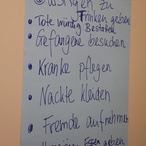 Durstigen zu Trinken geben
Tote würdig Bestatten
Gefangene besuchen
Kranke pflegen
Nackte kleiden
Fremde aufnehmen
Essen geben